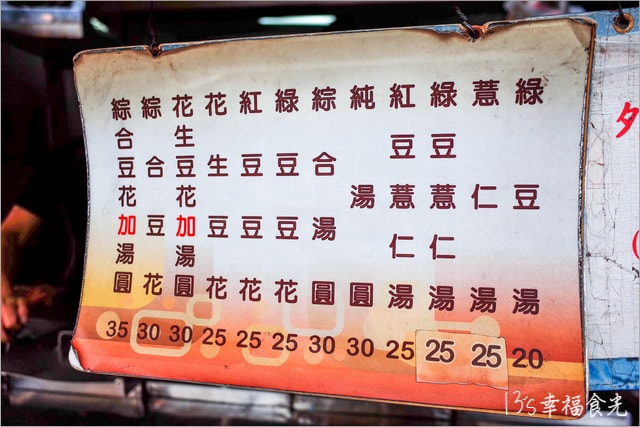 綠豆湯 20
薏仁湯 25
綠豆薏仁湯 25
紅豆薏仁湯 25
純湯圓 30
綜合湯圓 30
綠豆豆花 25
紅豆豆花 25
花生豆花 25
花生豆花加湯圓 30
綜合豆花 30
綜合豆花加湯圓 35
13's幸福食光